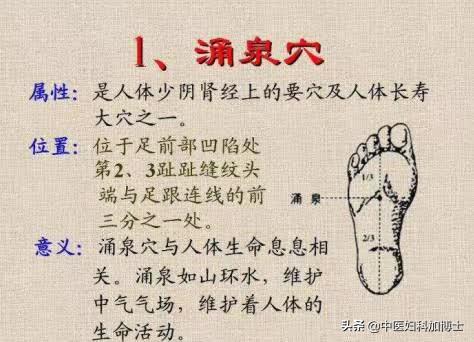 1、涌泉穴
属性：是人体少阴肾经上的要穴及人体长寿
大穴之一。
位置：位于足前部凹陷处
第2、3趾趾缝纹头
端与足跟连线的前
三分之一处。
涌泉
1/3
2/3
意义：涌泉穴与人体生命息息相
关。涌泉如山环水，维护
中气气场，维护着人体的
生命活动。
头条 @中医妇科加博士